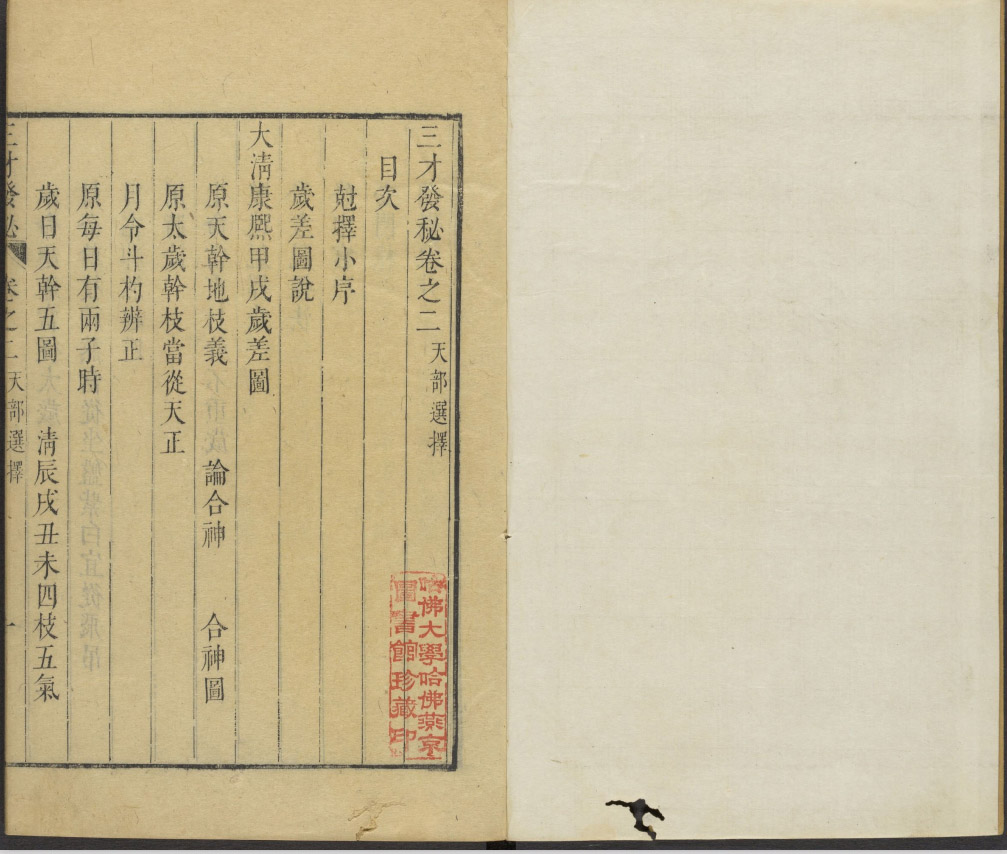 三才發秘卷之二 天部選擇
目次
尅擇小序
歲差圖說
大淸康熙甲戌歲差圖
原天幹地枝義 論合神 合神圖
原太歲幹枝當從天正
月令斗杓辨正
原每日有兩子時
歲日天幹五圖 淸辰戌丑未四枝五氣
三才發秘 卷之二 天部選擇 一
哈佛大學哈佛燕京
圖書館珍藏印